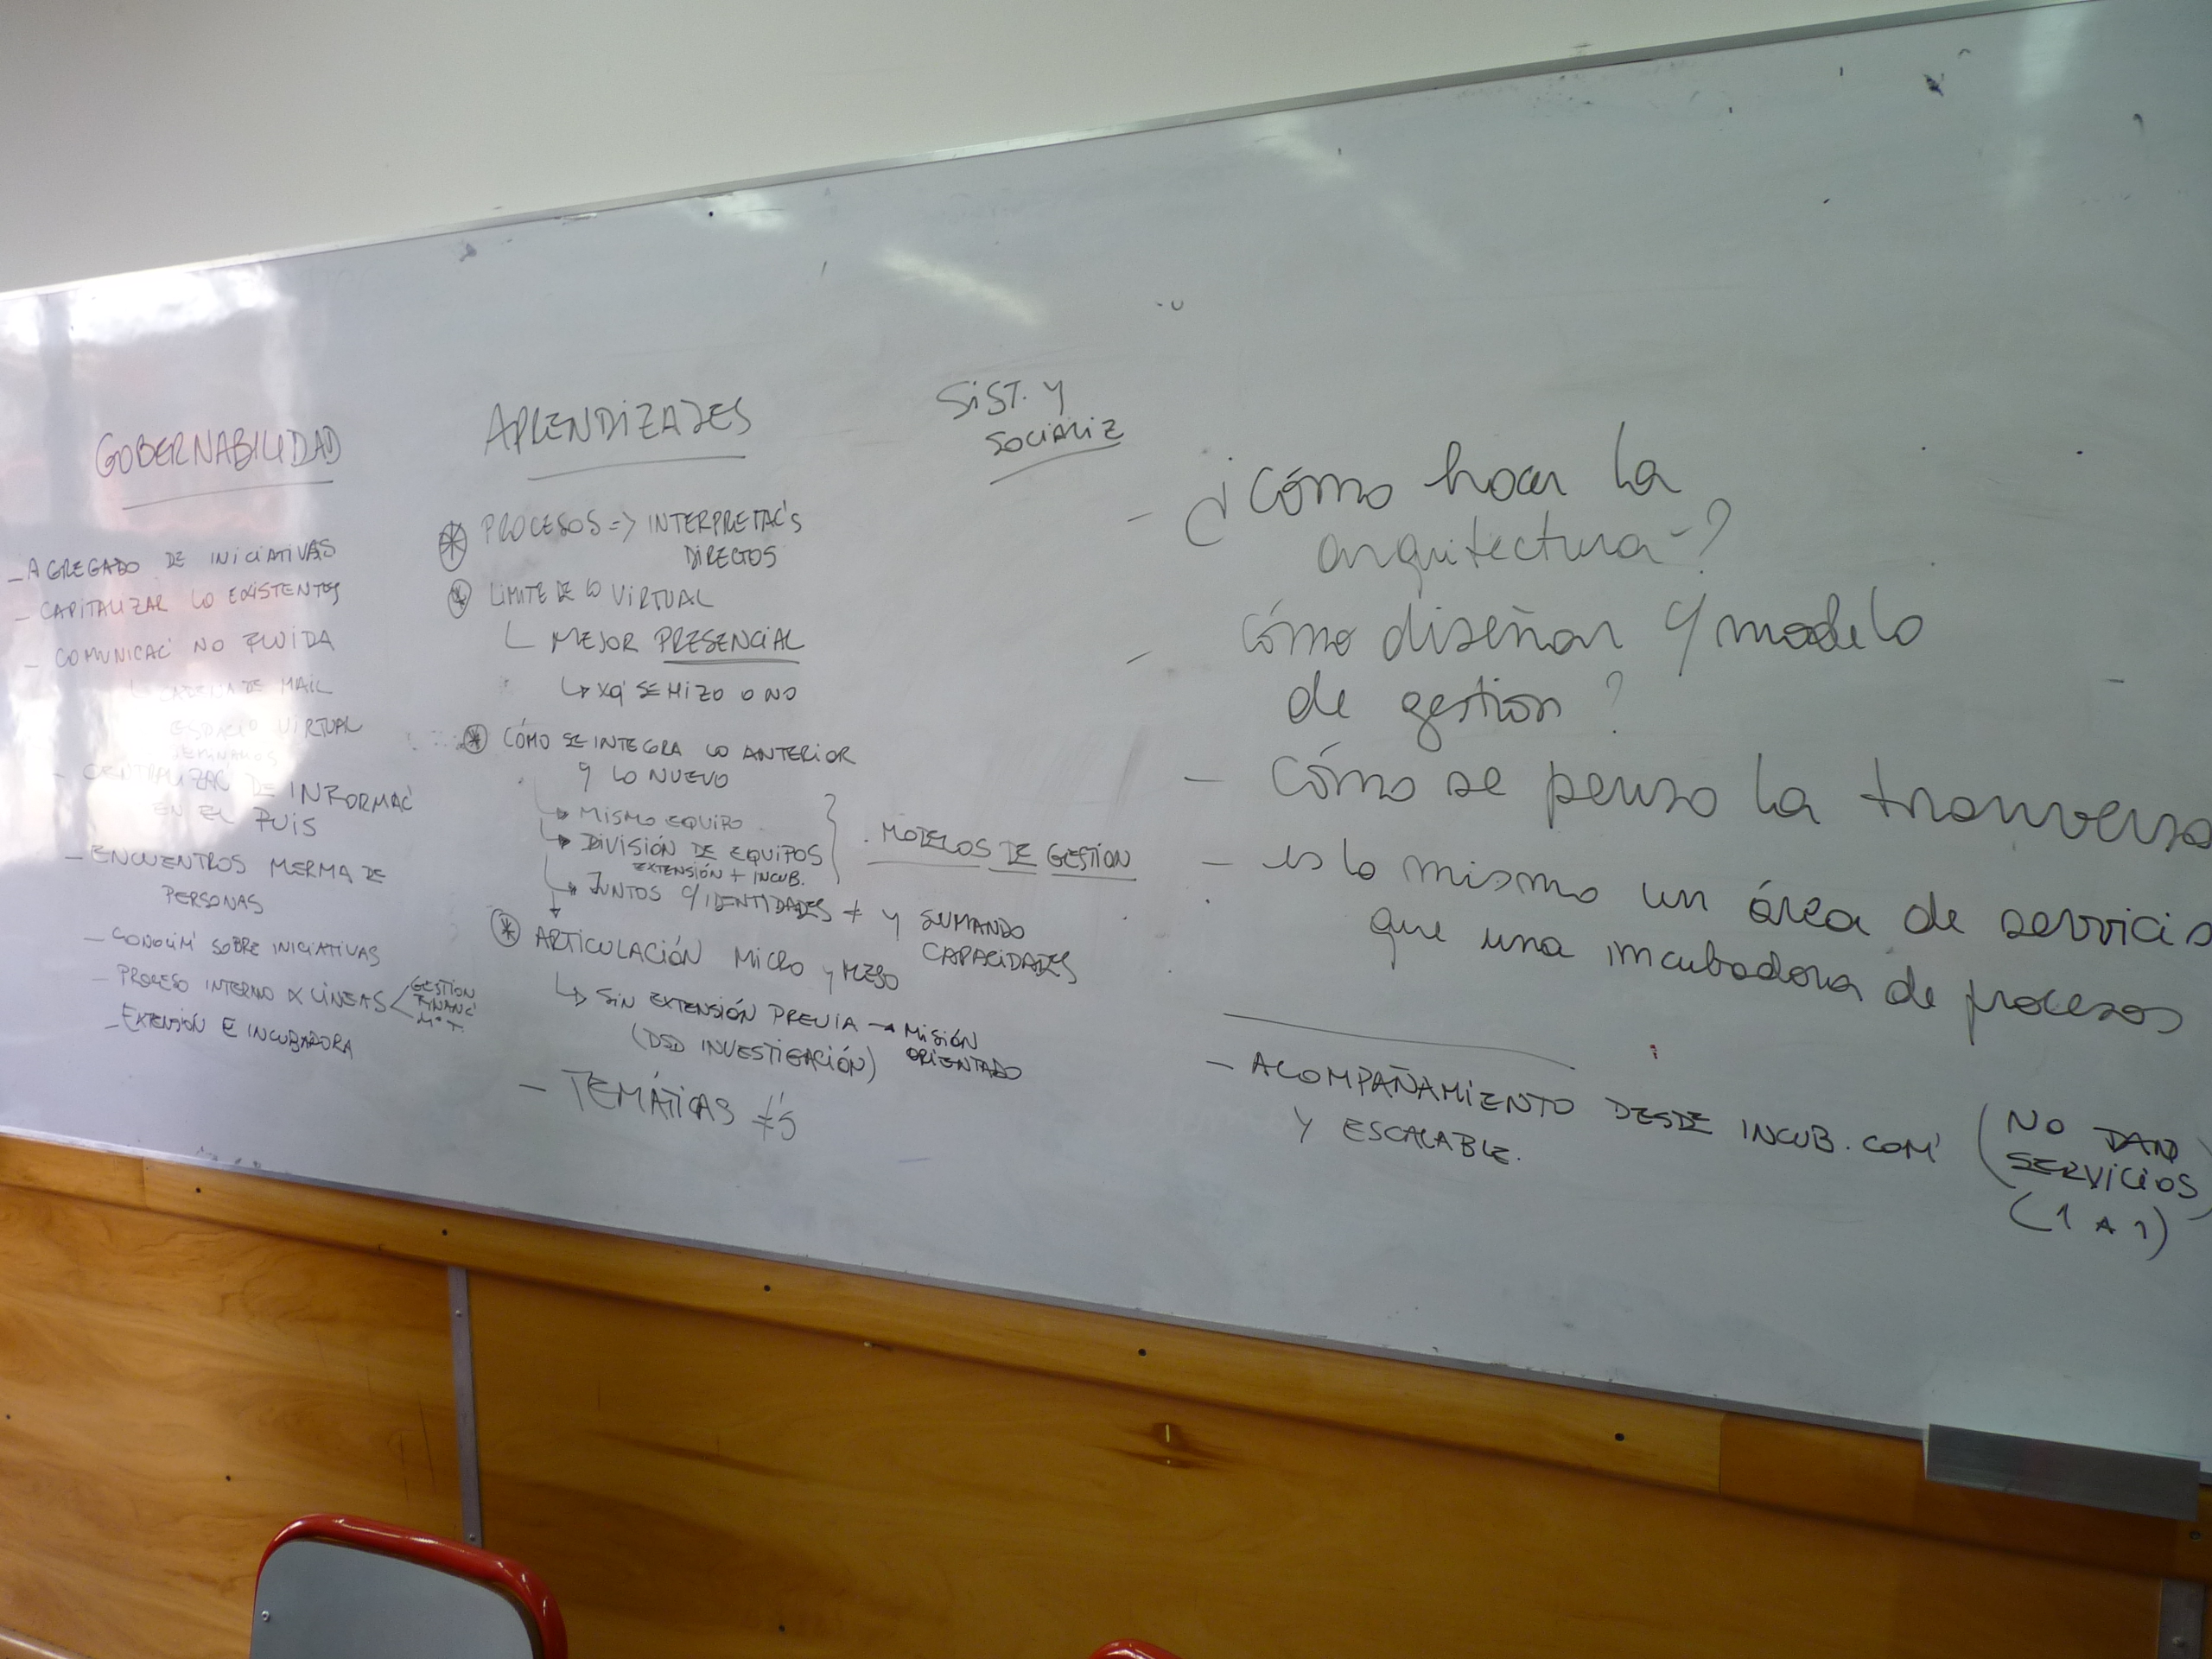 GOBERNABILIDAD
- AGREGADO DE INICIATIVAS
- CAPITALIZAR LO EXISTENTES
- COMUNICAC' NO FLUIDA
CADENA DE MAIL
ESPACIO VIRTUAL
DE INFORMAC'
EN EL PUIS
- ENCUENTROS MERMA DE
PERSONAS
- CONOCIM' SOBRE INICIATIVAS
- PROCESO INTERNO X LÍNEAS < GESTION
FINANC'
- EXTENSIÓN E INCUBADORA
APRENDIZAJES
* PROCESOS => INTERPRETAC'S
DIRECTOS
* LIMITE DE LO VIRTUAL
MEJOR PRESENCIAL
↳ XQ' SE HIZO O NO
* CÓMO SE INTEGRA LO ANTERIOR
Y LO NUEVO
↳ MISMO EQUIPO
↳ DIVISIÓN DE EQUIPOS
EXTENSIÓN + INCUB.
} MODELOS DE GESTIÓN
↳ JUNTOS C/IDENTIDADES ≠ Y SUMANDO
CAPACIDADES
* ARTICULACIÓN MICRO Y MESO
↳ SIN EXTENSIÓN PREVIA → MISIÓN
ORIENTADO
(DSD INVESTIGACIÓN)
- TEMÁTICAS ≠'S
SIST. Y
SOCIALIZ
- ¿Cómo hacer la
arquitectura?
- cómo diseñar y modelo
de gestión?
- Cómo se pensó la
- es lo mismo un área de servicio
que una incubadora de procesos
- ACOMPAÑAMIENTO DESDE INCUB. COM'
Y ESCALABLE.
(NO DAN
SERVICIOS)
(1 A 1)